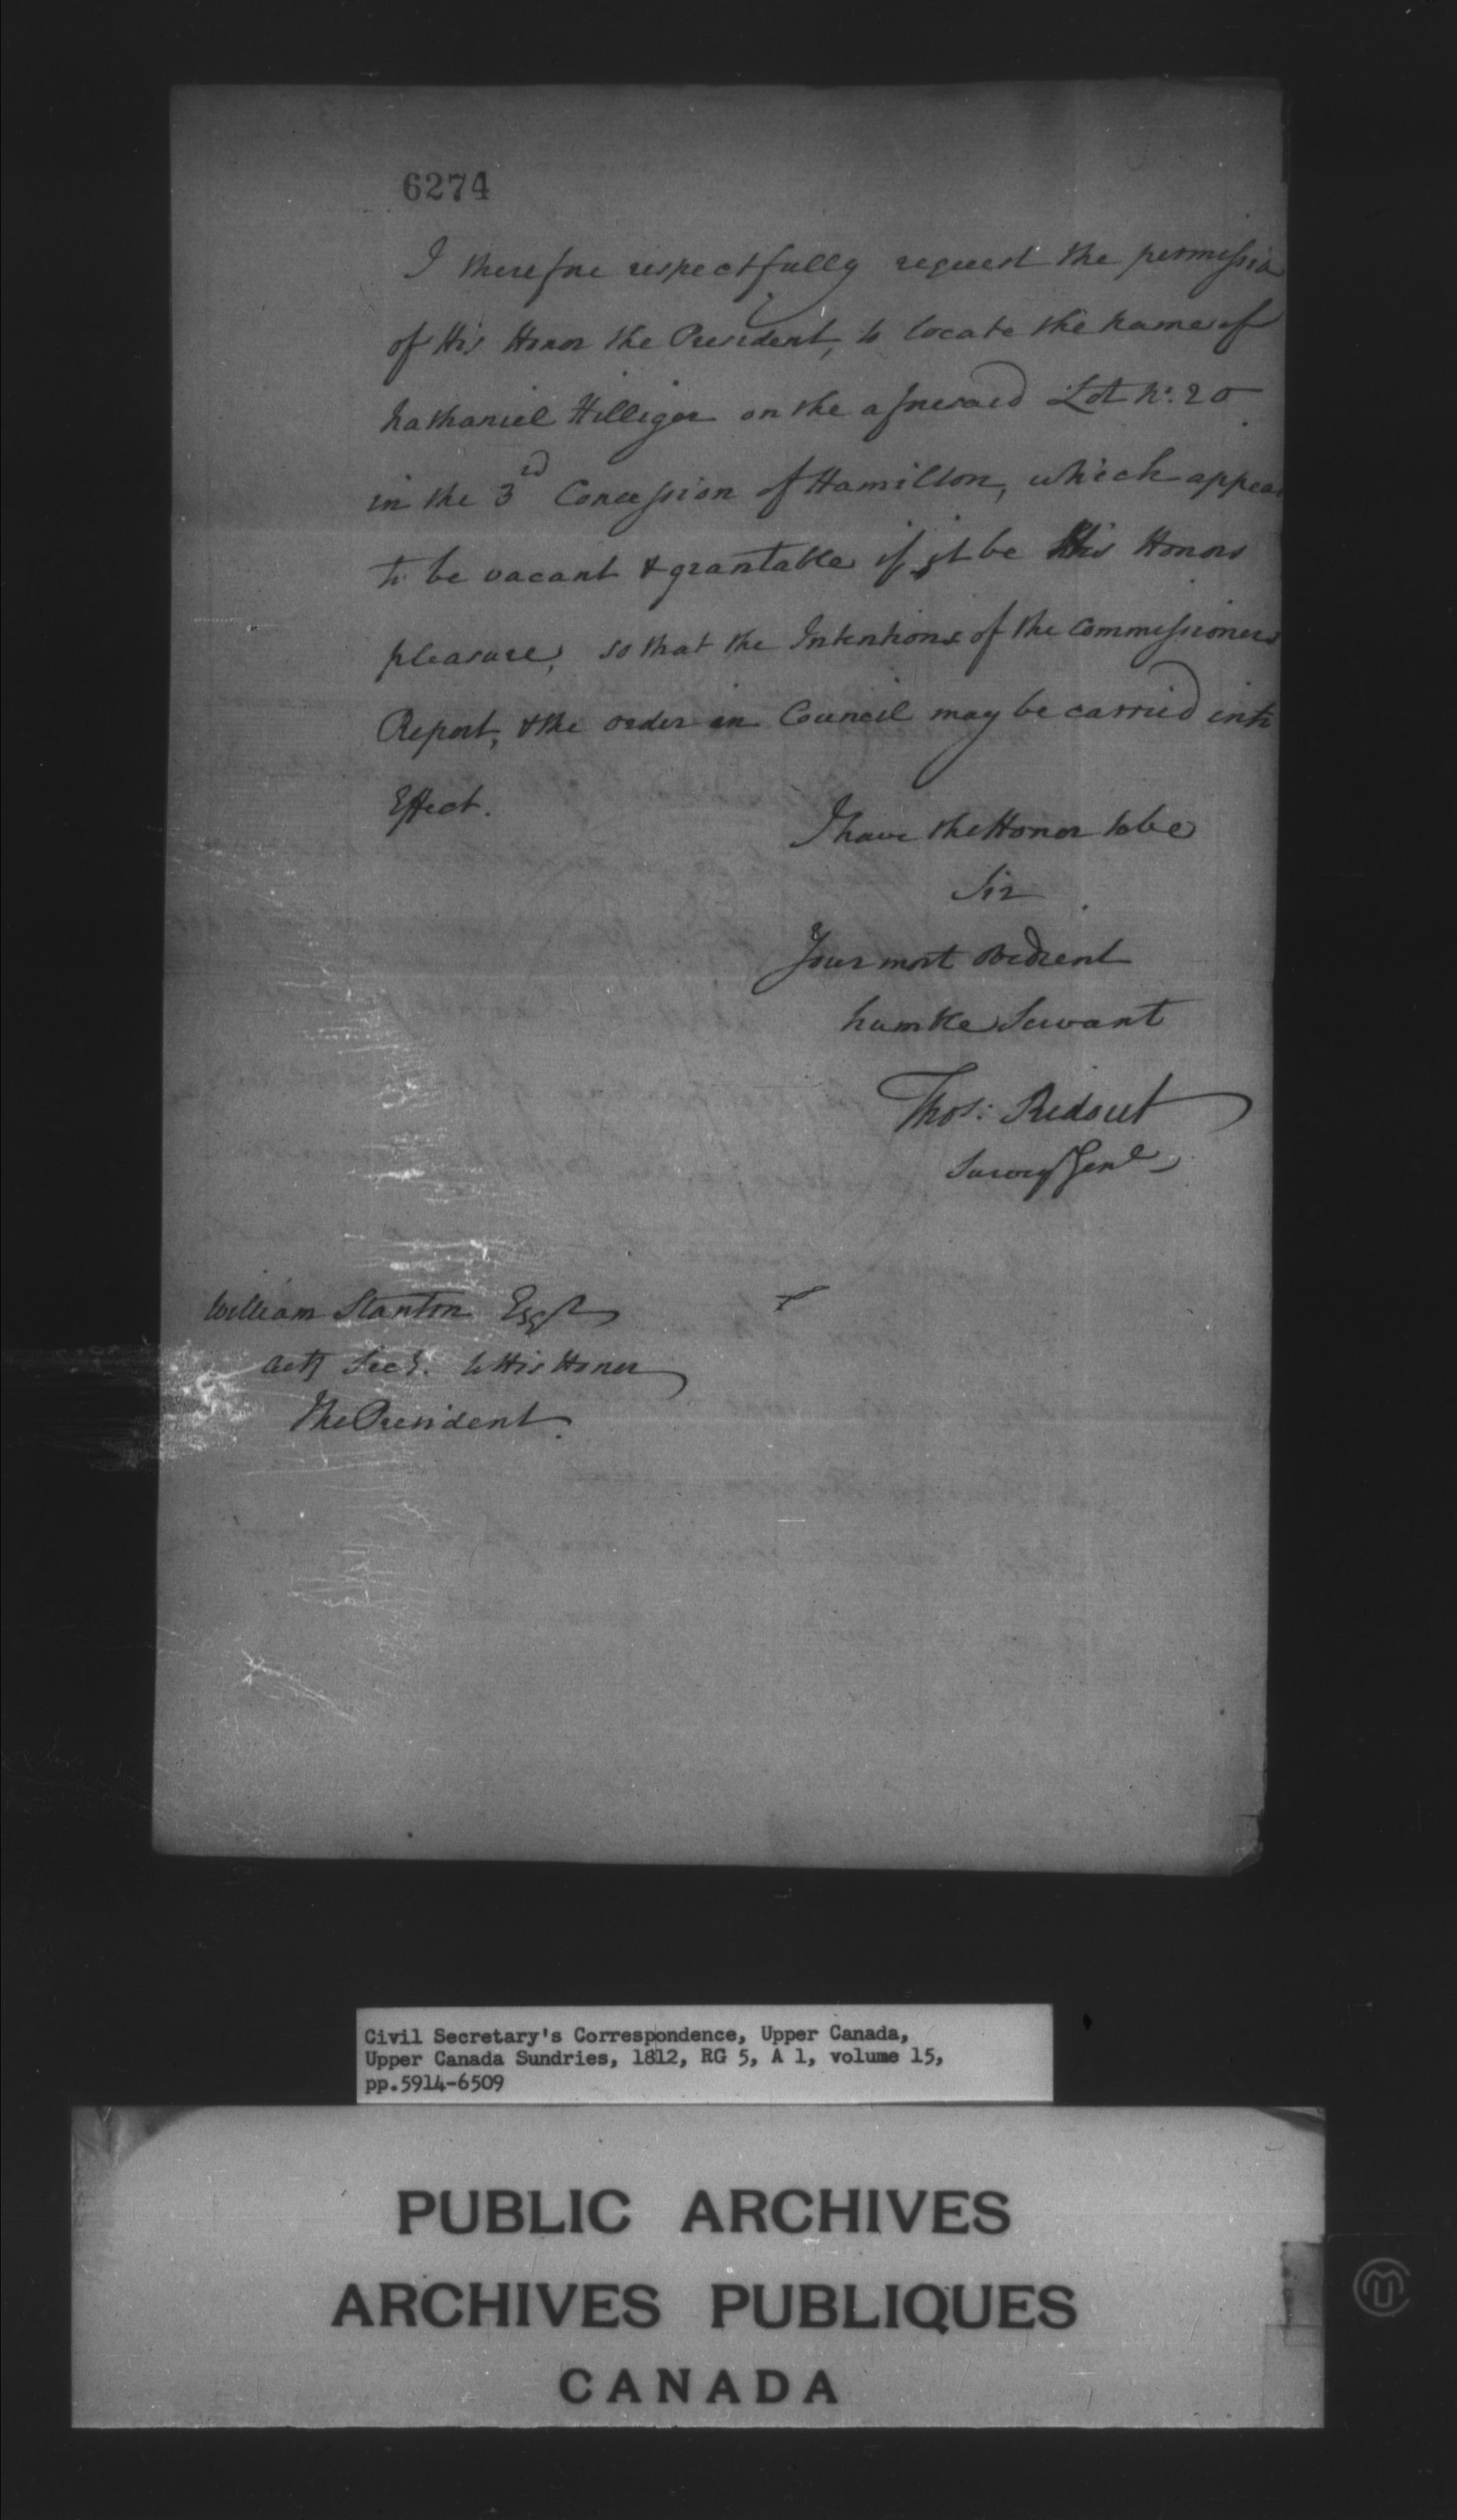 6274
I therefore respectfully request the permissio
of His Honor the President, to locate the name of
Nathaniel Hilliger on the aforesaid Lot No. 20
in the 3rd Concession of Hamilton, which appear
to be vacant & grantable if it be His Honors
pleasure, so that the Intentions of the Commissioners
Report, & the order in Council may be carried into
Effect.
I have the Honor to be
Sir
Your most obedient
humble Servant
Thos: Ridout
Survey Genl
William Stanton Esqr
actg Secy. to His Honor
The President.
Civil Secretary's Correspondence, Upper Canada,
Upper Canada Sundries, 1812, RG 5, A 1, volume 15,
pp.5914-6509
PUBLIC ARCHIVES
ARCHIVES PUBLIQUES
CANADA